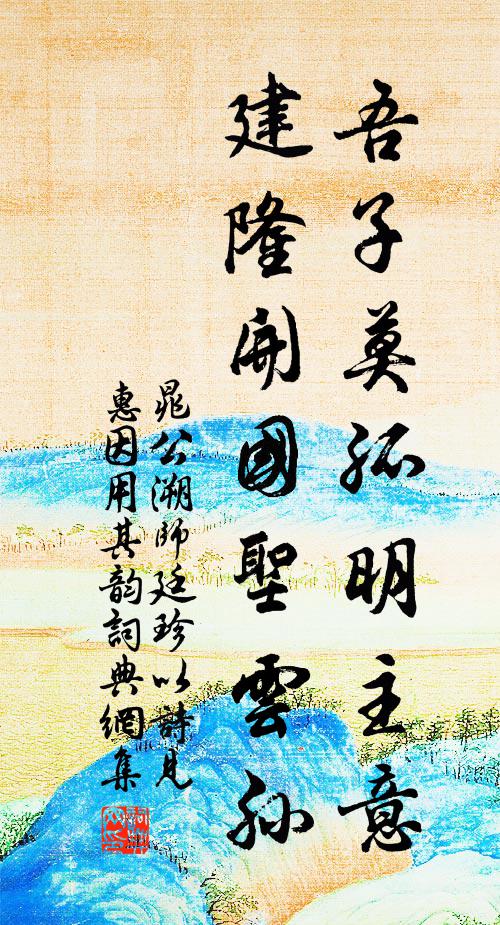 吾子莫孤明主意
建隆開國聖雲孫
晁公溯師廷珍以詩見
惠因用其韵詞典網集